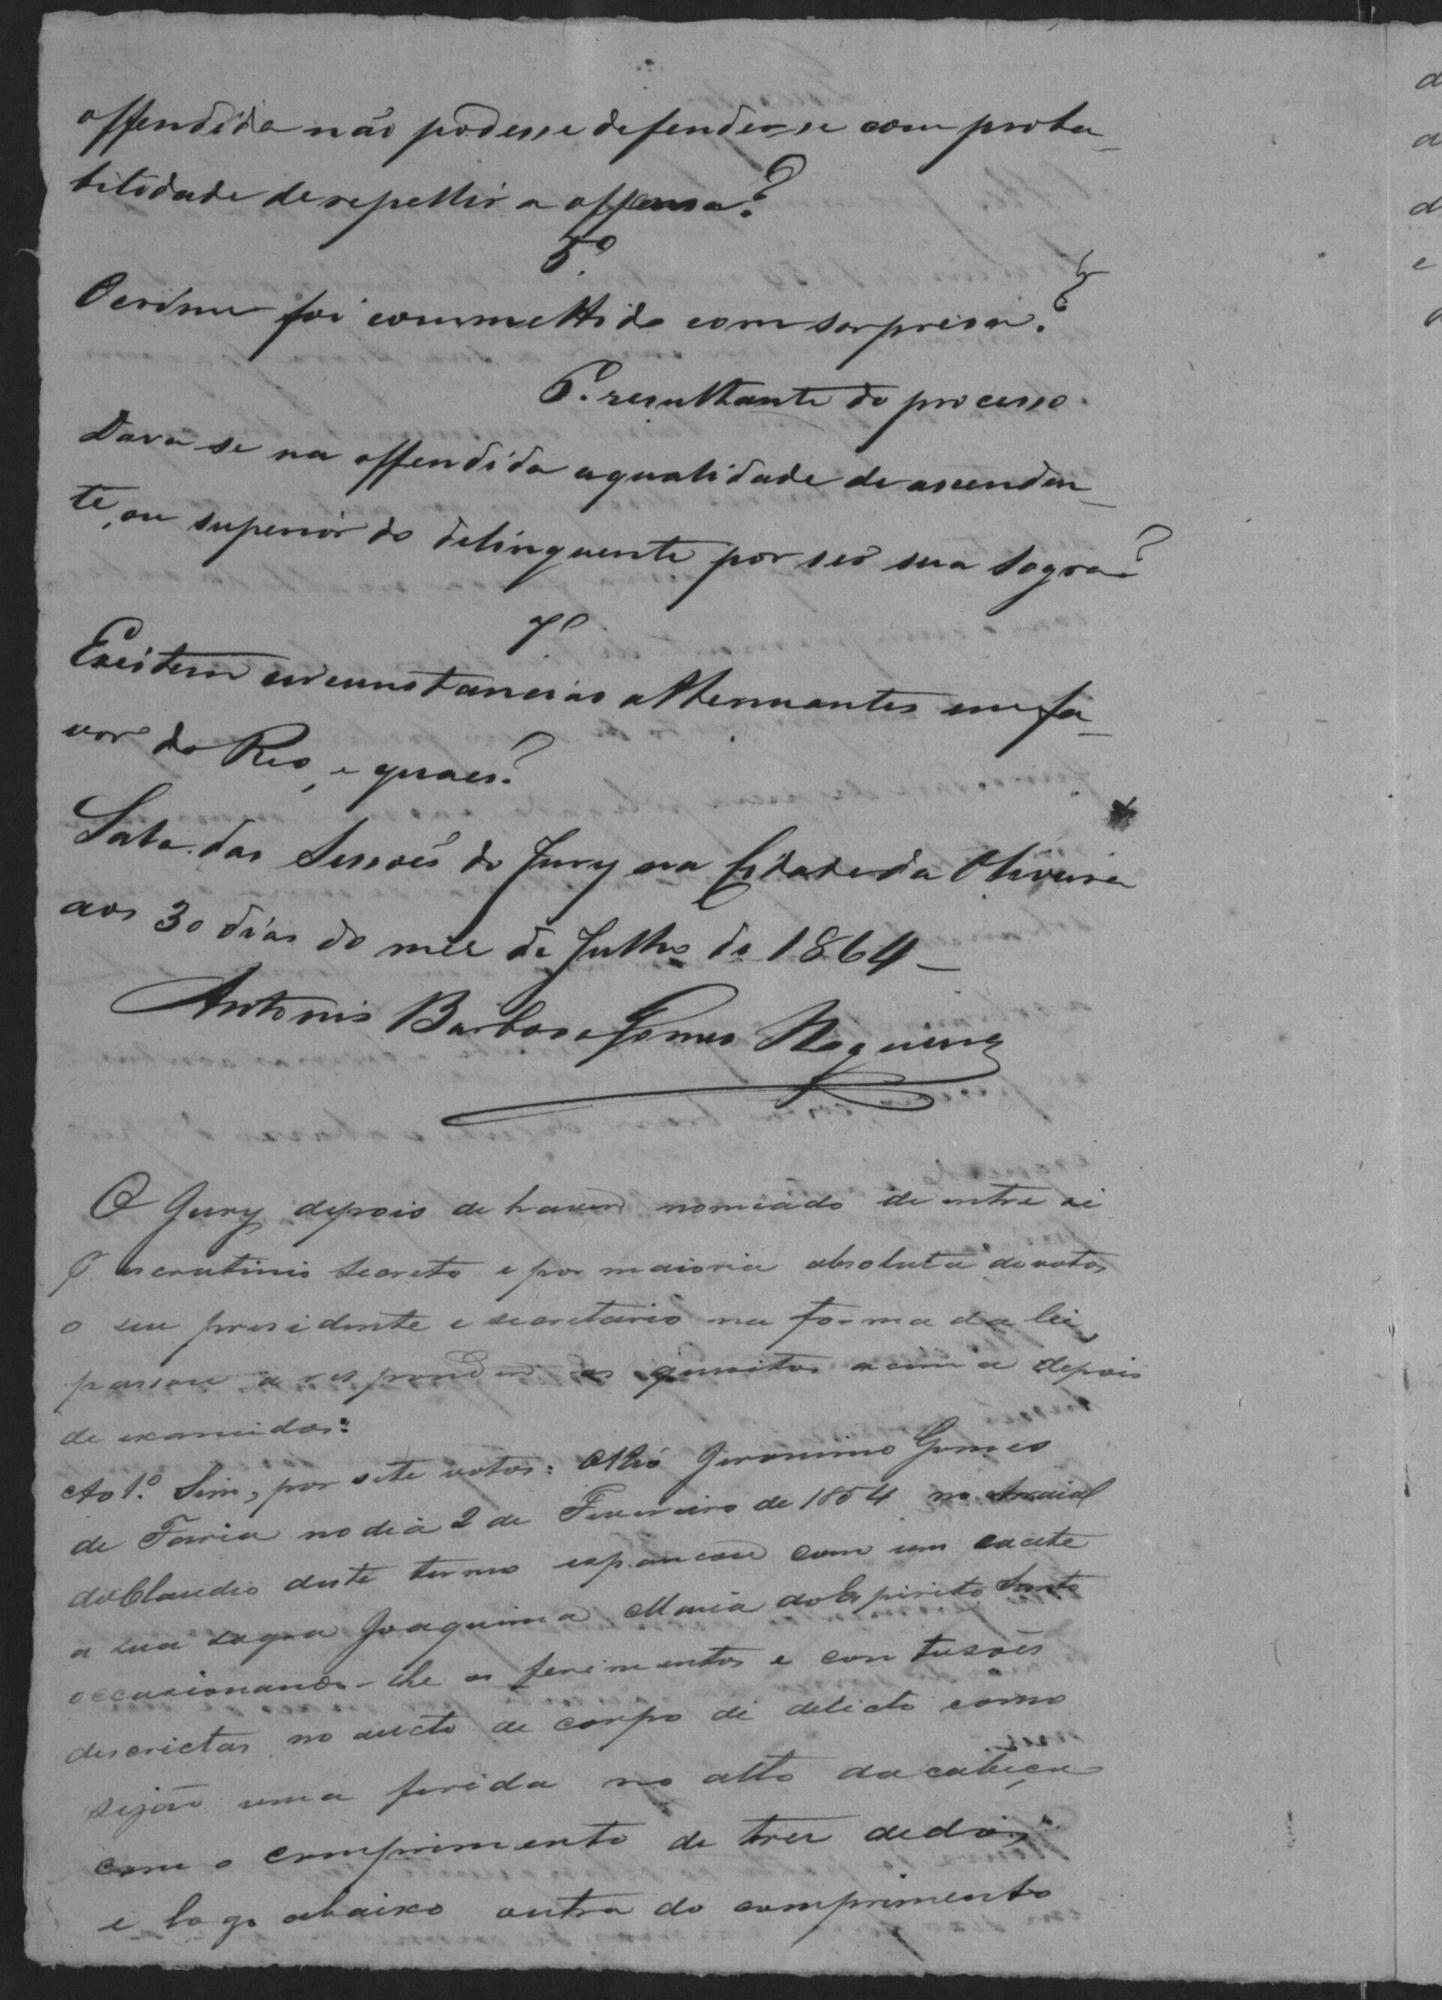 offendida não podesse defender-se com proba-
bilidade de repellir a offensa?
5º
O crime foi commettido com sorpresa?
6º resultante do processo.
Dava-se na offendida a qualidade de ascenden-
te, ou superior do delinquente por ser sua sogra?
7º
Existem circunstancias attenuantes em fa-
vor do Reo, e quaes?
Sala das Sessões do Jury na Cidade da Oliveira
aos 30 dias do mez de Julho de 1864 –
Antonio Barbosa Gomes Nogueira
O Jury depois de haver nomeado de entre si
escrutinio secreto e por maioria absoluta de votos
o seu presidente e secretario na forma da lei,
passou a responder os quesitos acima depois
de examidos:
Ao 1º Sim, por sete votos: O Réo Jeronimo Gomes
de Faria no dia 2 de Fevereiro de 1864 no Arraial
do Claudio deste termo espancou com um cacete
a sua sogra Joaquina Maria do Espirito Santo
occasionando-lhe os ferimentos e contusões
descrictas no aucto de corpo de delicto como
sejão uma ferida no alto da cabeça
com o comprimento de tres dedos,
e logo abaixo outra do comprimento